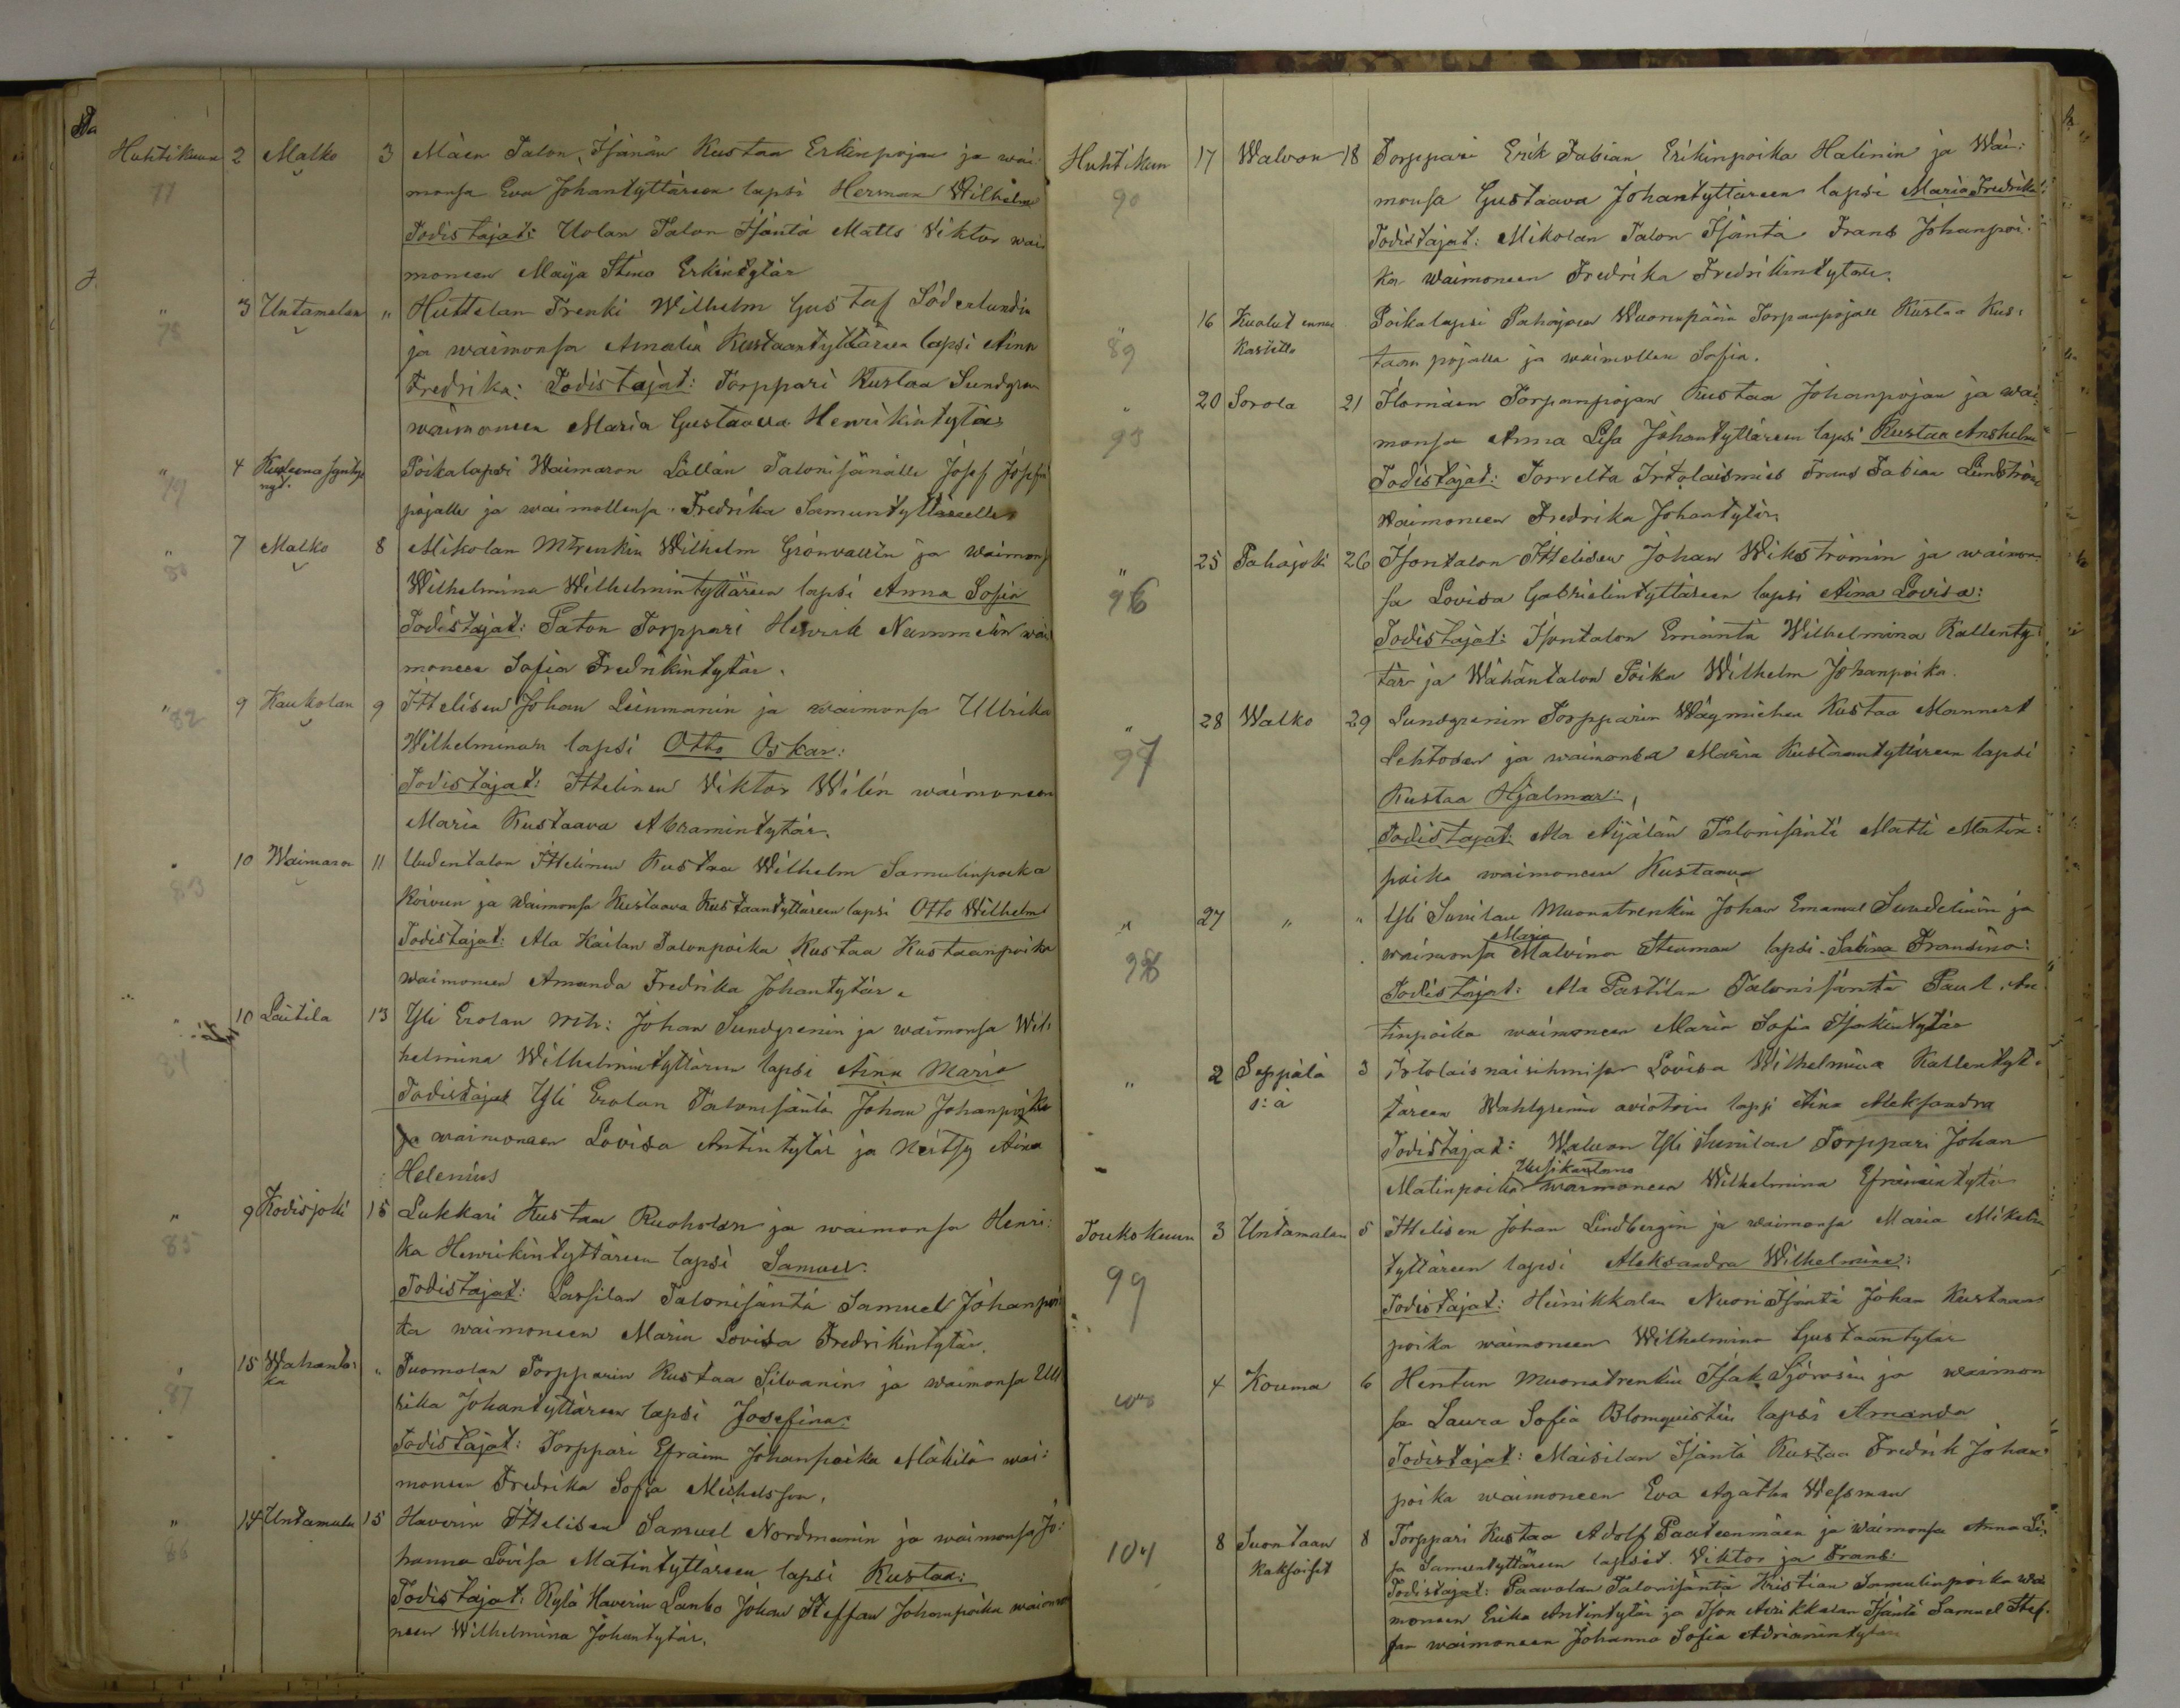 Huhtikuun 2 Malko 3 Mäen Talon, Isänän Kustaa Erkinpojan ja wai:
77 monsa Eva Johantyttären lapsi Herman Wilhelm
Todistajat: Uolan Talon Isäntä Matts Viktor wai
moneen Maija Stina Erkintytär
" 3 Untamalan " Huttelan Trenki Wilhelm Gustaf Söderlundin
78 ja waimonsa Amalia Kustaantyttären lapsi Aina
Fredrika: Todistajat: Torppari Kustaa Sundgren
waimoneen Maria Gustaava Henrikintytär
" 4 Kuoleena synty Poikalapsi Waimaron Lallan Talonisänälle Josef Josefin
79 nyt. pojalle ja waimollensa Fredrika Samuntyttärelle
" 7 Malko 8 Mikolan Mtrenkin Wilhelm Grönvallin ja waimons
80 Wilhelmina Wilhelmintyttären lapsi Anna Sofia
Todistajat: Paton Torppari Henrik Nummelin wai
moneen Sofia Fredrikintytär.
" 9 Kaukolan 9 Ittelisen Johan Leinmanin ja waimonsa Ullrika
82 Wilhelminan lapsi Otto Oskar:
Todistajat: Ittelinen Viktor Wilén waimoneen
Maria Kustaava Abramintytär.
" 10 Waimaro 11 Uudentalon Ittelinen Kustaa Wilhelm Samulinpoika
83 Koivun ja Waimonsa Kustaava Kustaantyttären lapsi Otto Wilhelm
Todistajat: Ala Kailan Talonpoika Kustaa Kustaanpoika
waimoneen Amanda Fredrika Johantytär.
" 10 Laitila 13 Yli Erolan mtr: Johan Sundgrenin ja waimonsa Wil:
84 helmina Wilhelmintyttären lapsi Aina Maria
Todistajat Yli Erolan Talonisäntä Johan Johanpoika
ja waimoneen Lovisa Antintytär ja Neitsy Aina
Helenius
" 9 Kodisjoki 15 Lukkari Kustaa Ruoholan ja waimonsa Henri:
85 ka Henrikintyttären lapsi Samuel:
Todistajat: Lassilan Talonisäntä Samuel Johanpoi
ka waimoneen Maria Lovisa Fredrikintytär.
" 15 Wahanto: " Tuomolan Torpparin Kustaa Silvanin ja waimonsa Ull
87 ka rika Johantyttären lapsi Josefina:
Todistajat: Torppari Efraim Johanpoika Mäkilä wai:
moneen Fredrika Sofia Michelsson.
" 14 Untamala 15 Haverin Ittelisen Samuel Nordmanin ja waimonsa Jo:
86 hanna Lovisa Matintyttären lapsi Kustaa:
Todistajat: Kylä Haverin Lanbo Johan Steffan Johanpoika waimo
neen Wilhelmina Johantytär.
Huhtikuun 17 Walvon 18 Torppari Erik Fabian Erikinpoika Halinin ja Wai:
90 monsa Gustaava Johantyttären lapsi Maria Fredrika:
Todistajat: Mikolan Talon Isäntä Frans Johanpoi:
ka waimoneen Fredrika Fredrikintytär.
" 16 Kuollut ennen Poikalapsi Pahojoen Wuorenpään Torpanpojalle Kustaa Kus:
89 Kastetta taan pojalle ja waimollen Sofia.
" 20 Sorola 21 Ilomäen Torpanpojan Kustaa Johanpojan ja wai:
95 monsa Anna Lisa Johantyttären lapsi Kustaa Anshelm
Todistajat: Torvelta Irtolaismies Frans Fabian Lindström
Waimoneen Fredrika Johantytär
" 25 Pahojoki 26 Isontalon Ittelisen Johan Wikströmin ja waimon
96 sa Lovisa Gabrielintyttären lapsi Aina Lovisa:
Todistajat: Isontalon Emäntä Wilhelmina Kallenty:
tär ja Wähäntalon Poika Wilhelm Johanpoika.
" 28 Walko 29 Sundgrenin Torpparin Wägmiehen Kustaa Mannert
97 Lehtosen ja waimonsa Maria Kustaantyttären lapsi
Kustaa Hjalmar:
Todistajat: Ala Äijälän Talonisäntä Matti Matin:
poika waimoneen Kustaava
" 27 " " Yli Sunilan Muonatrenkin Johan Emanuel Sundelinin ja
98 waimonsa Maria Malvina Stenman lapsi Sabina Fransina:
Todistajat: Ala Pastilan Talonisäntä Paul An
tinpoika waimoneen Maria Sofia Isakintytär
" 2 Seppälä 3 Irtolaisnaisihmisen Lovisa Wilhelmina Kallentyt:
s:a tären Wahlgrenin aviotoin lapsi Aina Aleksandra
Todistajat: Waluan Yli Sunilan Torppari Johan
Matinpoika Uusikartano waimoneen Wilhelmina Efraimintytär
Toukokuun 3 Untamalan 5 Ittelisen Johan Lindbergin ja waimonsa Maria Mikelin
99 tyttären lapsi Aleksandra Wilhelmina:
Todistajat: Heinikkalan Nuori Isäntä Johan Kustaan
poika waimoneen Wilhelmina Gustaantytär
100 4 Kouma 6 Hentun Muonatrenkin Isak Sjörosin ja waimon
sa Laura Sofia Blomquistin lapsi Amanda
Todistajat: Maisilan Isäntä Kustaa Fredrik Johan
poika waimoneen Eva Agatha Wessman
104 8 Suontaan 8 Torppari Kustaa Adolf Paateenmäen ja waimonsa Anna Li:
Kaksoiset sa Samuntyttären lapset. Viktor ja Frans:
Todistajat: Paavolan Talonisäntä Kristian Samulinpoika wai
moneen Erika Antintytär ja Ison Airikkalan Isäntä Samuel Stef:
fan waimoneen Johanna Sofia Adrianintytär